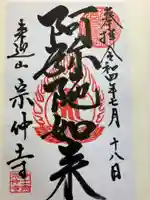 奉拝 令和四年七月十八日
阿弥陀如来
来迎山 宗仲寺